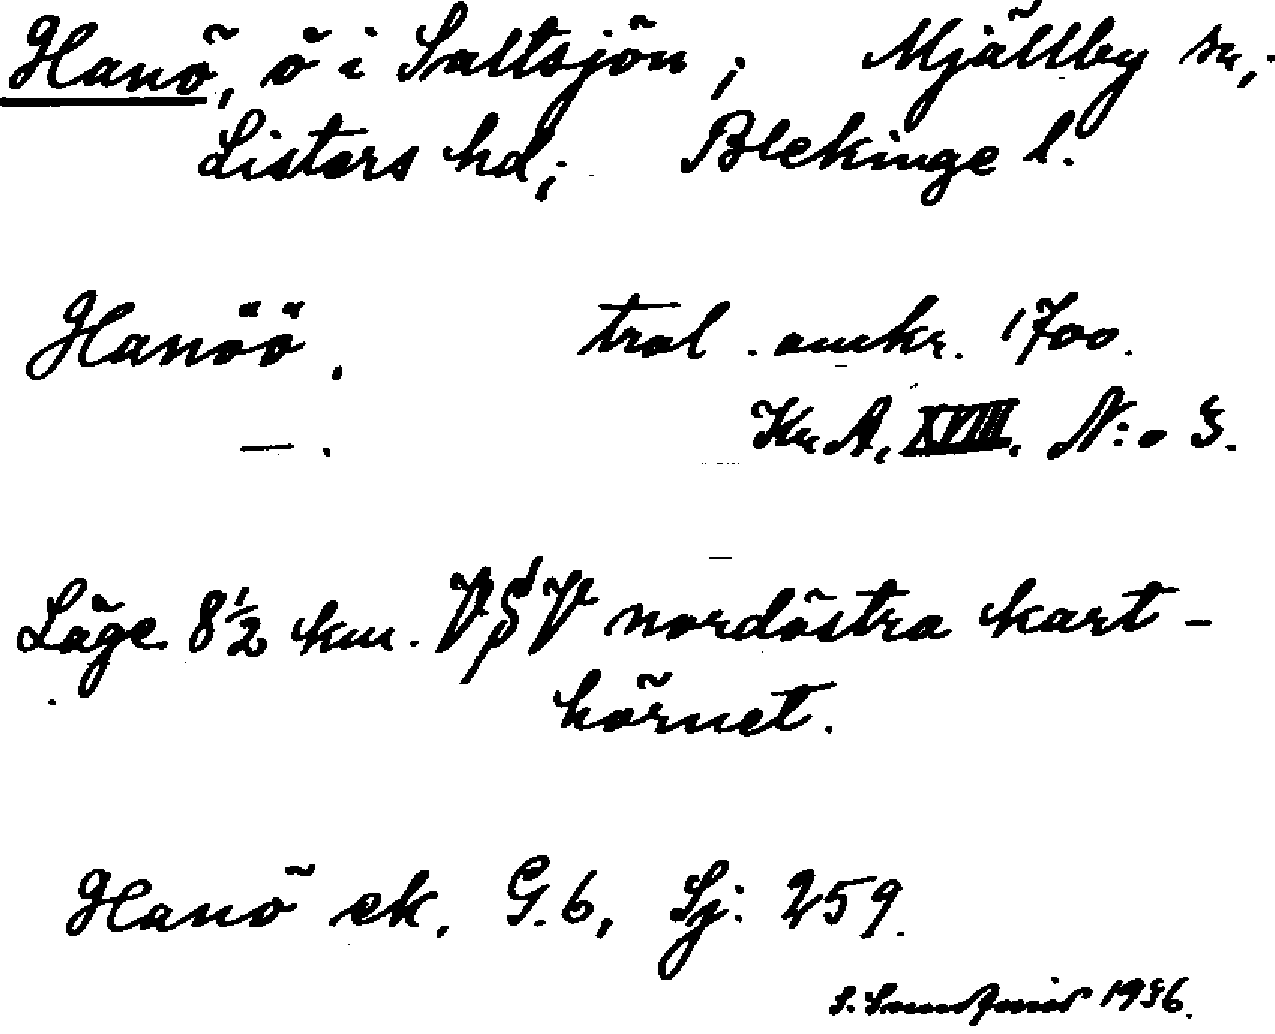 Hanö, ö i Saltsjön; Mjällby sn,
Listers hd; Blekinge l.
Hanöö. trol. omkr. 1700.
— . Kr A, XVIII. N:o 3.
Läge 8½ km. VSV nordöstra kart-
hörnet.
Hanö ek. G. 6, Sj: 259.
S. 1936.